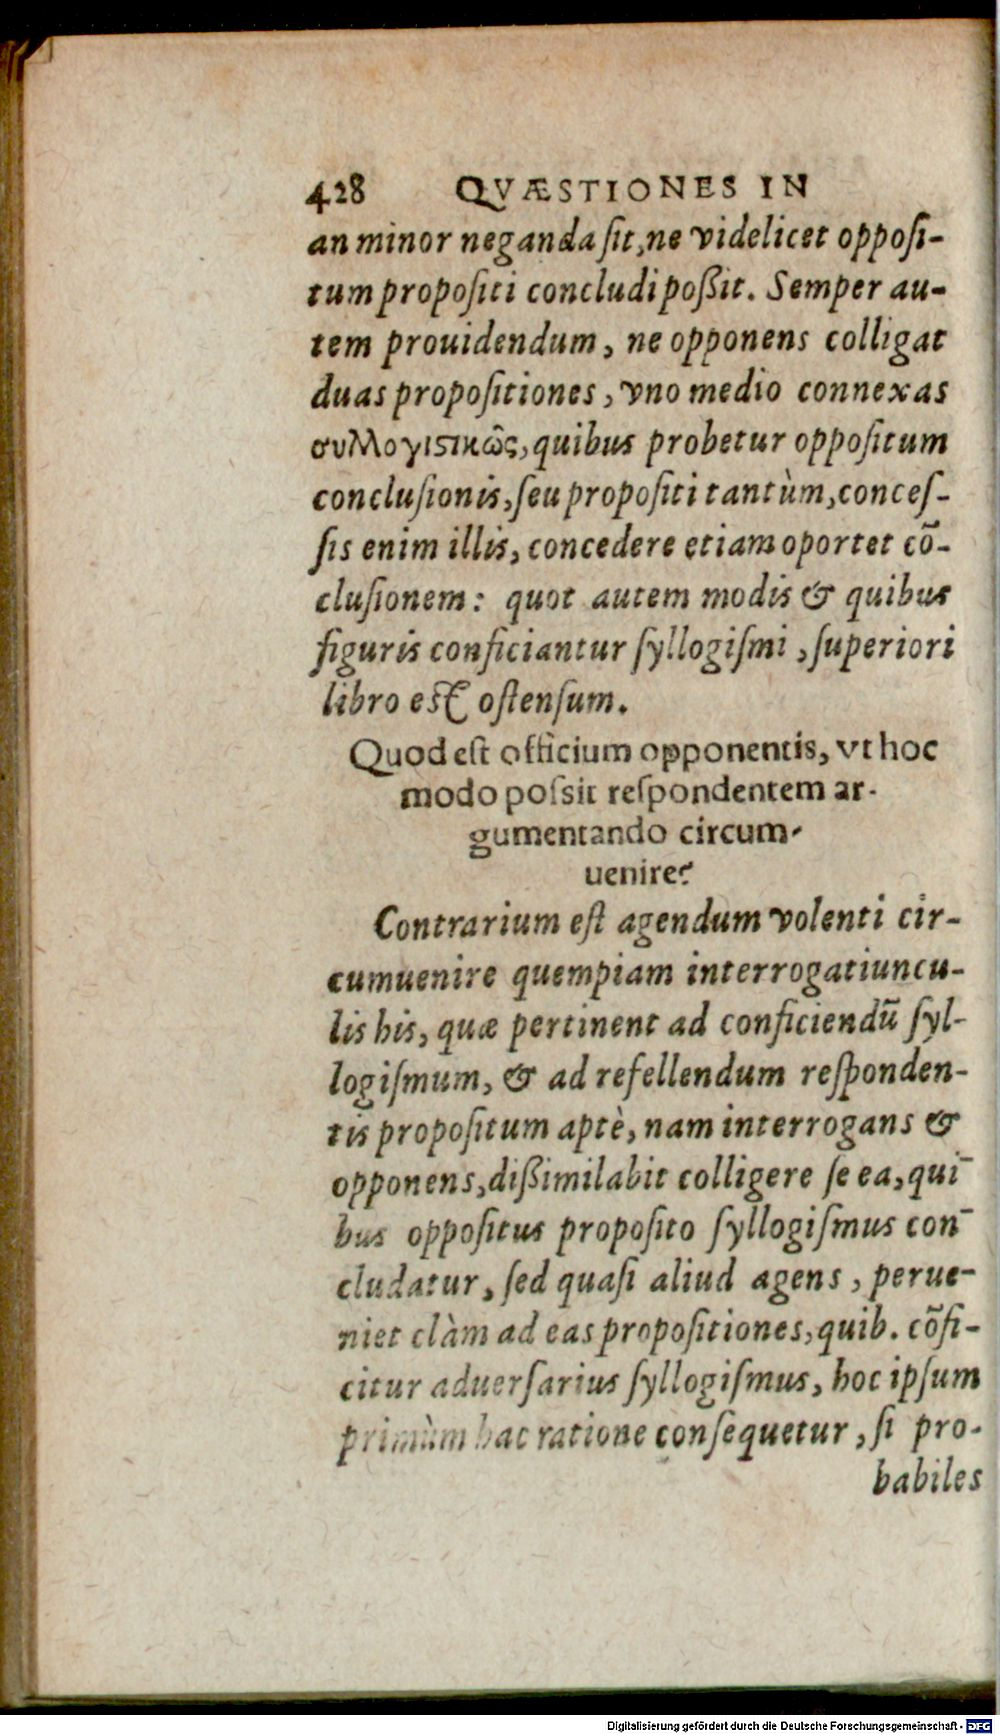 428 QVÆSTIONES IN
an minor neganda ſit, ne videlicet oppoſi-
tum propoſiti concludi poßit. Semper au-
tem prouidendum, ne opponens colligat
duas propoſitiones, vno medio connexas
συλλογιστικῶς, quibus probetur oppoſitum
concluſionis, ſeu propoſiti tantùm, conceſ-
ſis enim illis, concedere etiam oportet cō-
cluſionem: quot autem modis & quibus
figuris conficiantur ſyllogiſmi, ſuperiori
libro eſt oſtenſum.
Quod eſt officium opponentis, vt hoc
modo poſsit reſpondentem ar-
gumentando circum-
uenire?
Contrarium eſt agendum volenti cir-
cumuenire quempiam interrogatiuncu-
lis his, quæ pertinent ad conficiendū ſyl-
logiſmum, & ad refellendum reſponden-
tis propoſitum aptè, nam interrogans &
opponens, dißimilabit colligere ſe ea, qui-
bus oppoſitus propoſito ſyllogiſmus con-
cludatur, ſed quaſi aliud agens, perue-
niet clàm ad eas propoſitiones, quib. cōfi-
citur aduerſarius ſyllogiſmus, hoc ipſum
primùm hac ratione conſequetur, ſi pro-
babiles
Digitalisierung gefördert durch die Deutsche Forschungsgemeinschaft - DFG